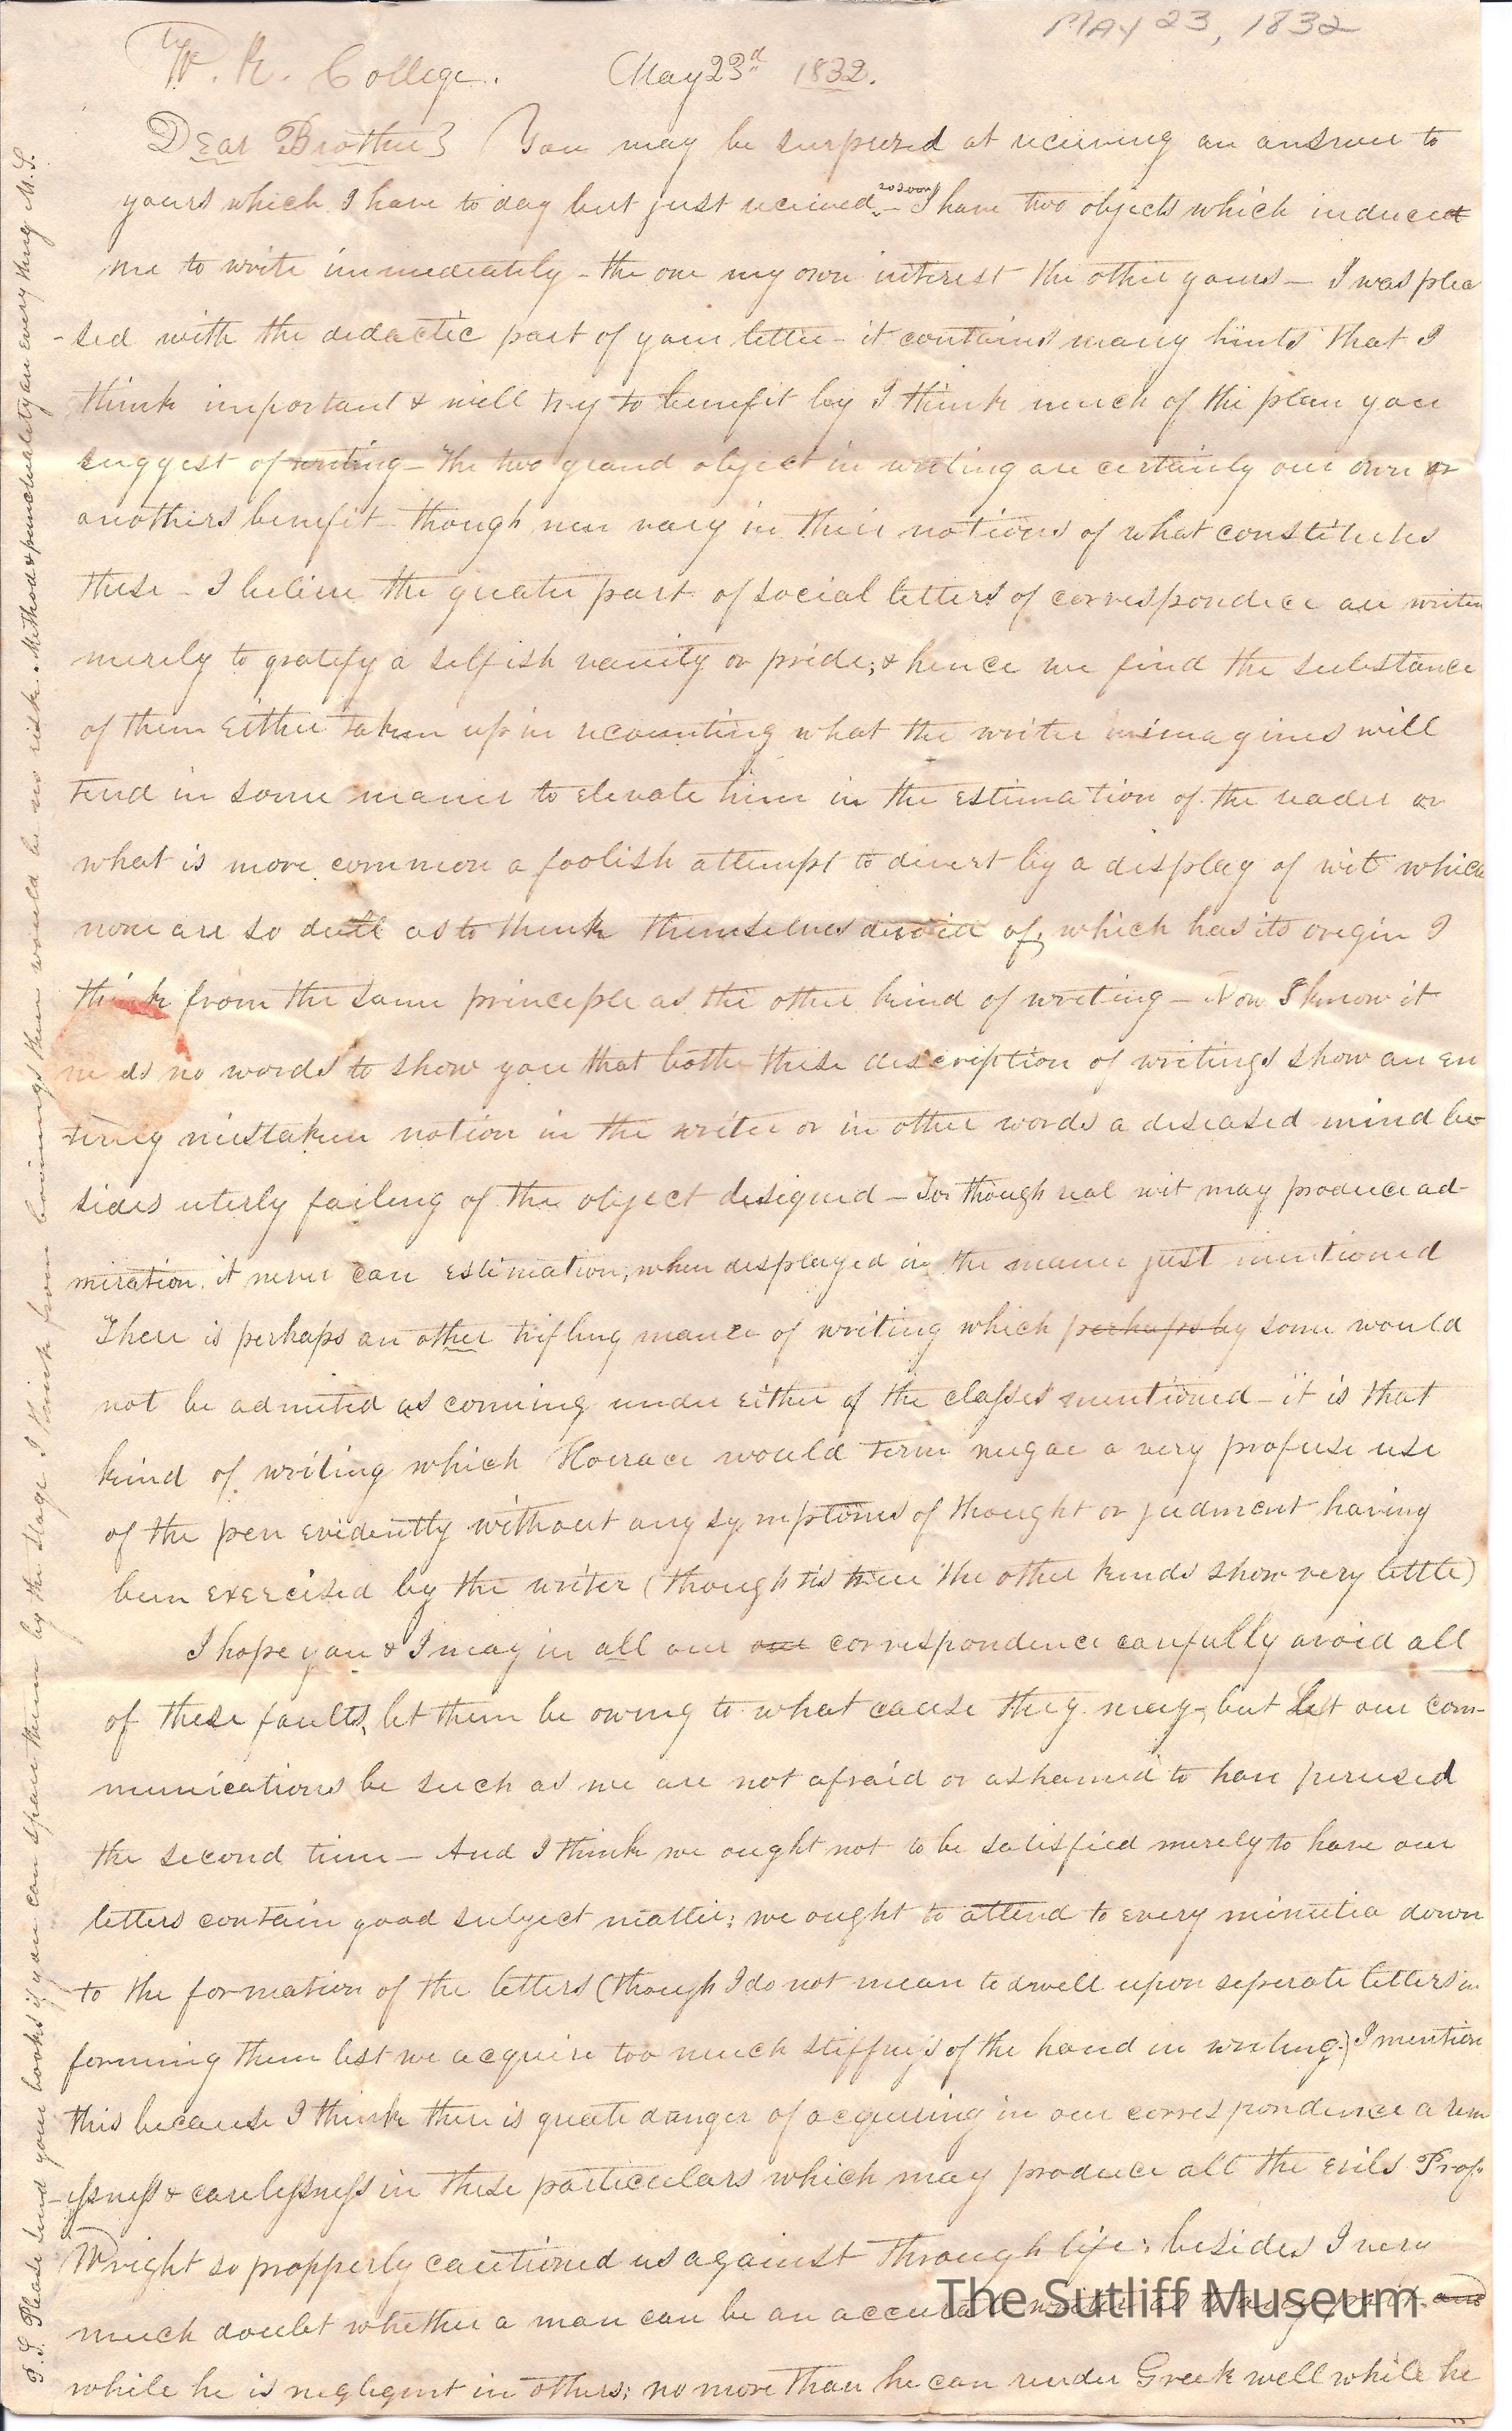 MAY 23, 1832
W. R. College. May 23d 1832.
Dear Brother } You may be surprised at receiving an answer to
yours which I have to day but just received so soon – I have two objects which induced
me to write immediately – the one my own interest the other yours – I was plea
-sed with the didactic part of your letter – it contains many hints that I
think important & will try to benefit by I think much of the plan you
suggest of writing – The two grand object in writing are certainly our own or
anothers benefit – though men vary in their notions of what constitutes
these – I believe the greater part of social letters of correspondece are writen
merely to gratefy a selfish vanity or pride; & hence we find the substance
of them either taken up in recounting what the writer imagines will
tend in some maner to elevate him in the estimation of the reader or
what is more common a foolish attempt to divert by a display of wit which
none are so dull as to think themselves devoid of, which has its origin I
think from the same principle as the other kind of writing – Now I know it
needs no words to show you that both these description of writings show an en
tirely mistaken notion in the writer or in other words a diseased mind be
sides uterly failing of the object designed – For though real wit may produce ad-
miration it never can estimation, when displayed in the maner just mentioned
There is perhaps an other trifling maner of writing which perhaps by some would
not be admited as coming under either of the classes mentioned – it is that
kind of writing which Horace would term nugae a very profuse use
of the pen evidently without any symptoms of thought or judment having
been exercised by the writer (though tis true the other kinds show very little)
I hope you & I may in all our our correspondence carefully avoid all
of these faults, let them be owing to what cause they may, but let our com-
munications be such as we are not afraid or ashamed to have perused
the second time – And I think we ought not to be satisfied merely to have our
letters contain good subject matter; we ought to attend to every minutia down
to the formation of the letters (though I do not mean to dwell upon seperate letters in
forming them lest we acquire too much stiffness of the hand in writing.) I mention
this because I think there is greate danger of acquiring in our correspondence a rem
-issness & carelessness in these particulars which may produce all the evils Prof.
Wright so propperly cautioned us against through life; besides I very
much doubt whether a man can be an accurate writer as to any part and
while he is neglegent in others; no more than he can render Greek well while he
P.S. Please send your books if you can spare them by the stage I think from there would be no risk. Method & punctuality are every thing M.S.
The Sutliff Museum